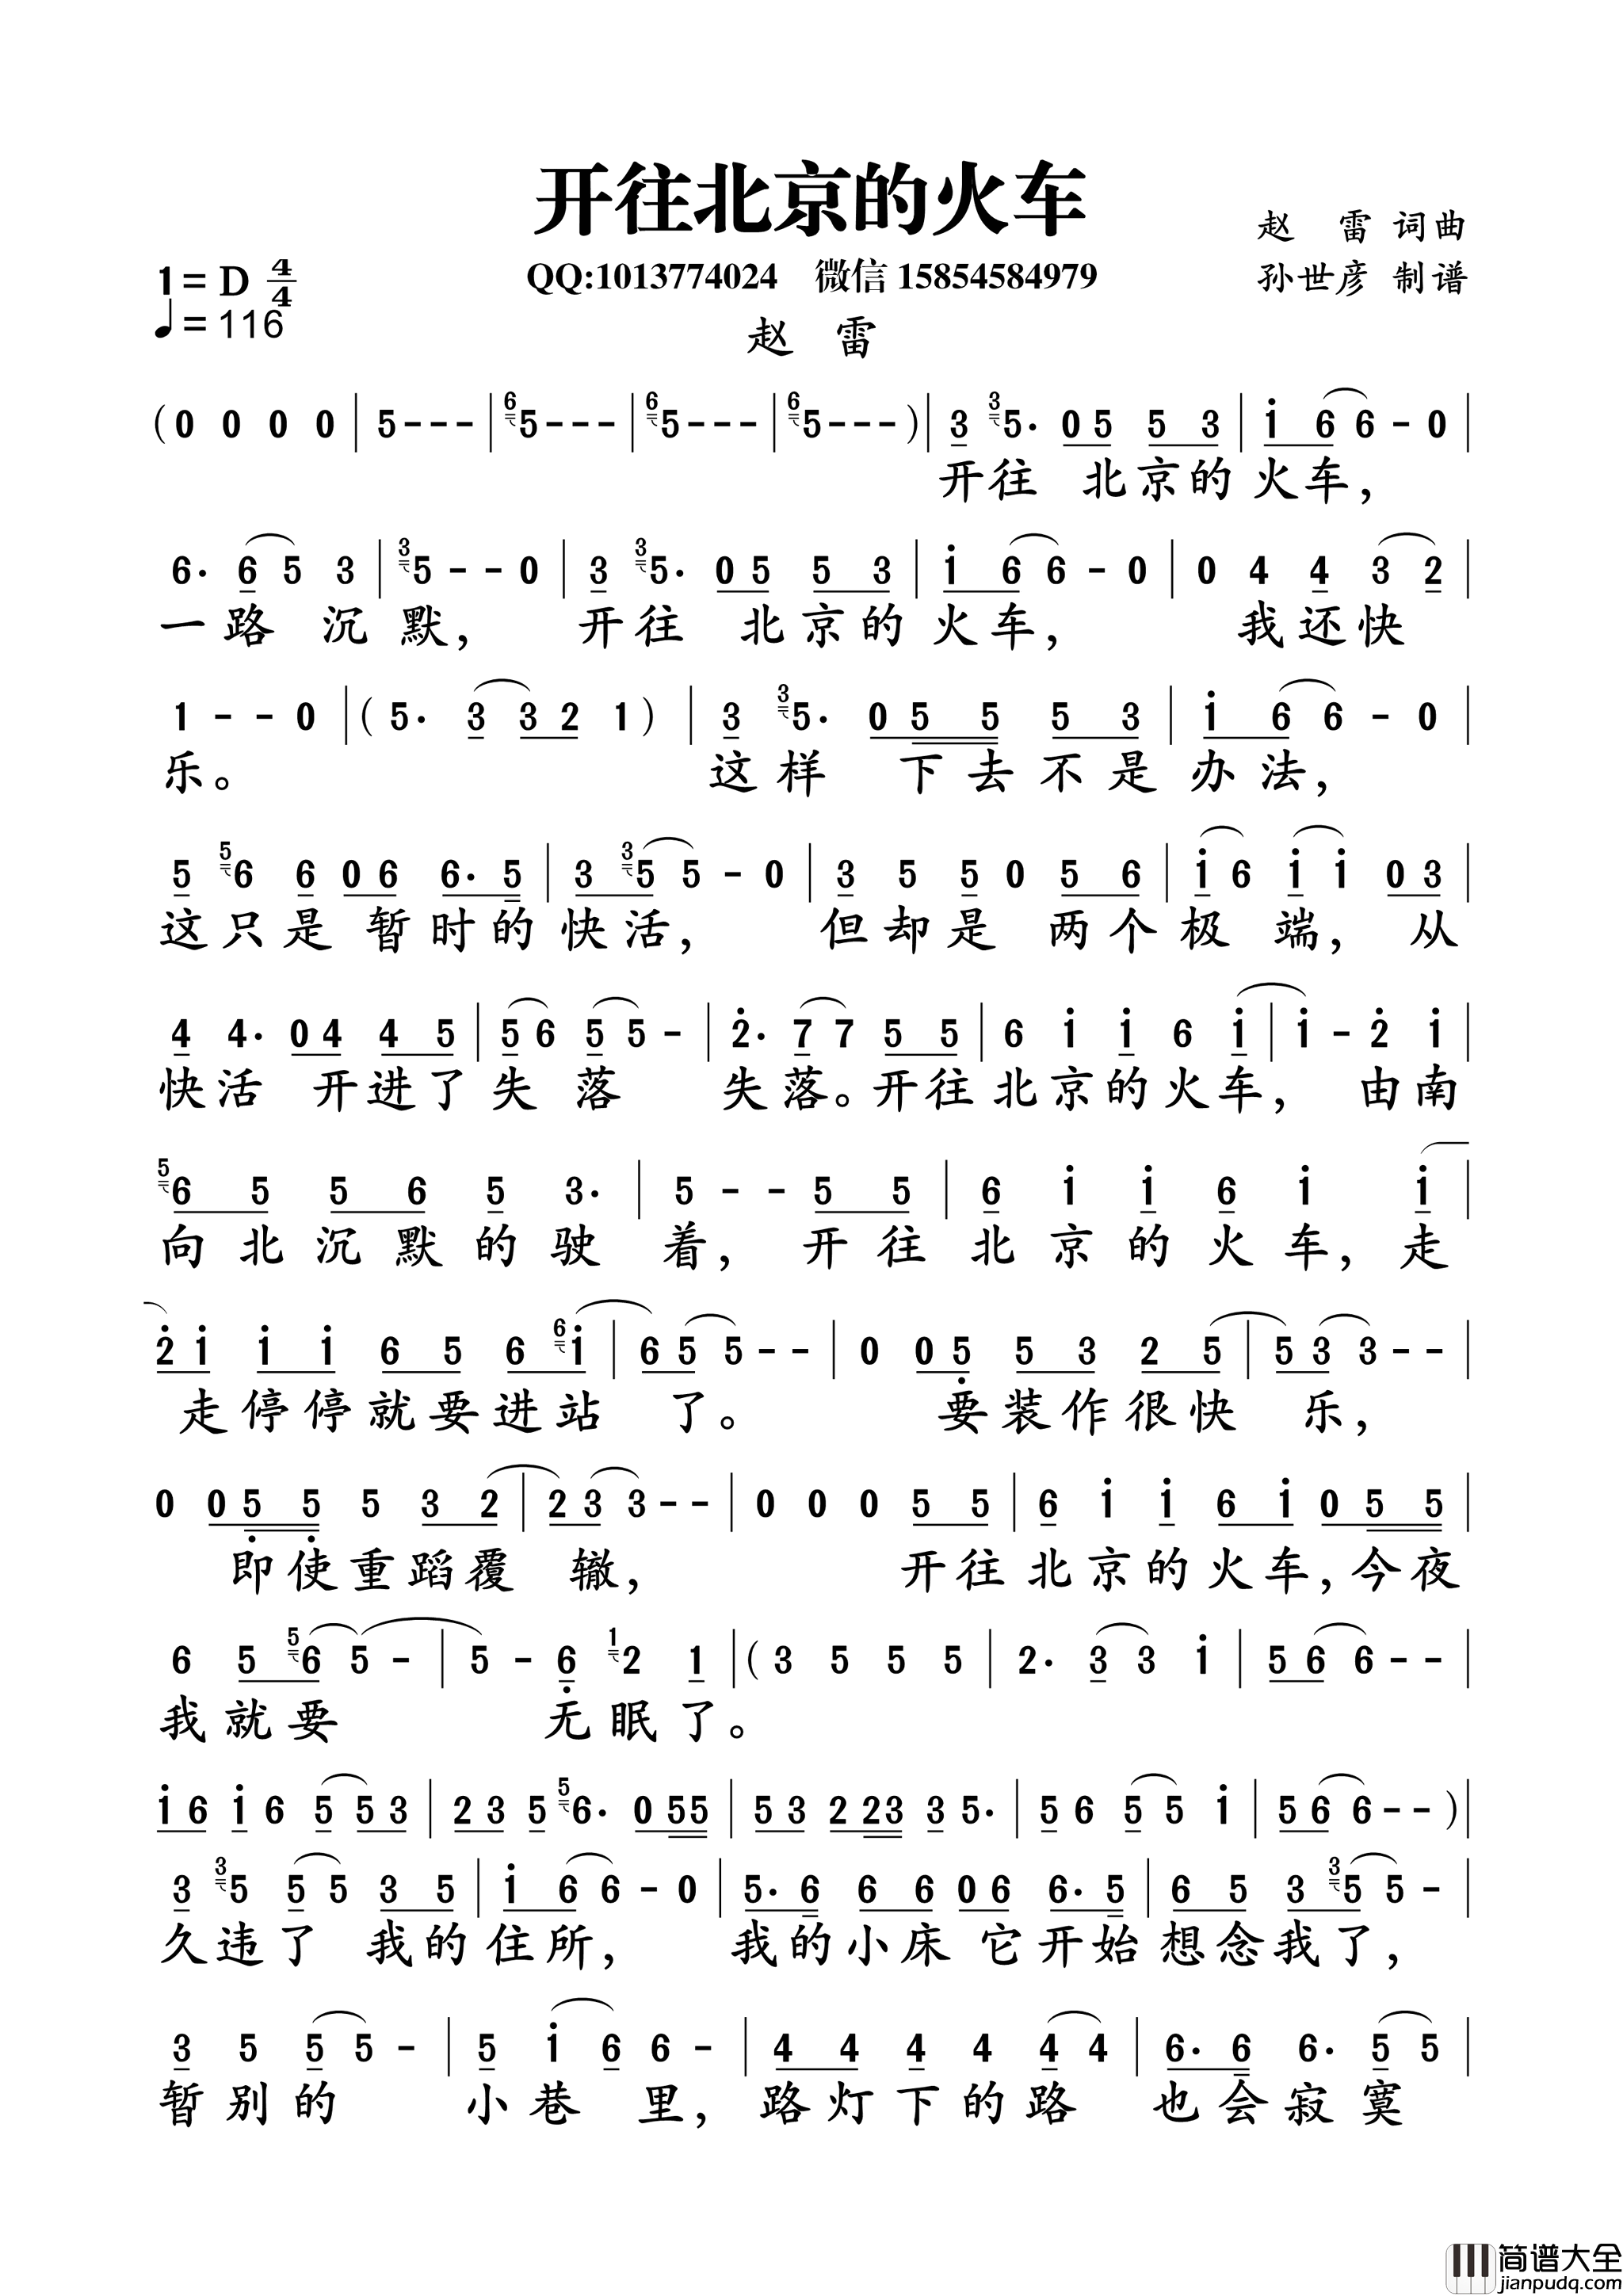 开往北京的火车
赵 雷 词曲
1=D 4/4
QQ:1013774024 微信 15854584979
孙世彦 制谱
♩=116
赵 雷
(0 0 0 0 | 5 - - - | 6 5 - - - | 6 5 - - - | 6 5 - - - ) | 3 3 5. 0 5 5 3 | i 6 6 - 0 |
开往 北京的火车，
6. 6 5 3 | 3 5 - - 0 | 3 3 5. 0 5 5 3 | i 6 6 - 0 | 0 4 4 3 2 |
一路 沉 默， 开往 北京的火车， 我还快
1 - - 0 | ( 5. 3 3 2 1 ) | 3 3 5. 0 5 5 5 3 | i 6 6 - 0 |
乐。 这样 下去不是办法，
5 5 6 6 0 6 6. 5 | 3 3 5 5 - 0 | 3 5 5 0 5 6 | i 6 i i 0 3 |
这只是暂时的快活， 但却是 两个极 端， 从
4 4. 0 4 4 5 | 5 6 5 5 - | 2. 7 7 5 5 | 6 i i 6 i | i - 2 i |
快活 开进了失 落 失落。开往北京的火车， 由南
5 6 5 5 6 5 3. | 5 - - 5 5 | 6 i i 6 i i |
向北沉默的驶 着， 开往北京的火车，走
2 i i i 6 5 6 6 i | 6 5 5 - - | 0 0 5 5 3 2 5 | 5 3 3 - - |
走停停就要进站 了。 要装作很快 乐，
0 0 5 5 5 3 2 | 2 3 3 - - | 0 0 0 5 5 | 6 i i 6 i 0 5 5 |
即使重蹈覆 辙， 开往北京的火车，今夜
6 5 5 6 5 - | 5 - 6 1 2 1 | ( 3 5 5 5 | 2. 3 3 i | 5 6 6 - - |
我就要 无眠了。
i 6 i 6 5 5 3 | 2 3 5 5 6. 0 5 5 | 5 3 2 2 3 3 5. | 5 6 5 5 i | 5 6 6 - - ) |
3 3 5 5 5 3 5 | i 6 6 - 0 | 5. 6 6 6 0 6 6. 5 | 6 5 3 3 5 5 - |
久违了 我的住所， 我的小床 它开始想念我了，
3 5 5 5 - | 5 i 6 6 - | 4 4 4 4 4 4 | 6. 6 6. 5 5 |
暂别的 小巷 里，路灯下的路 也会寂寞
简谱大全
jianpudq.com